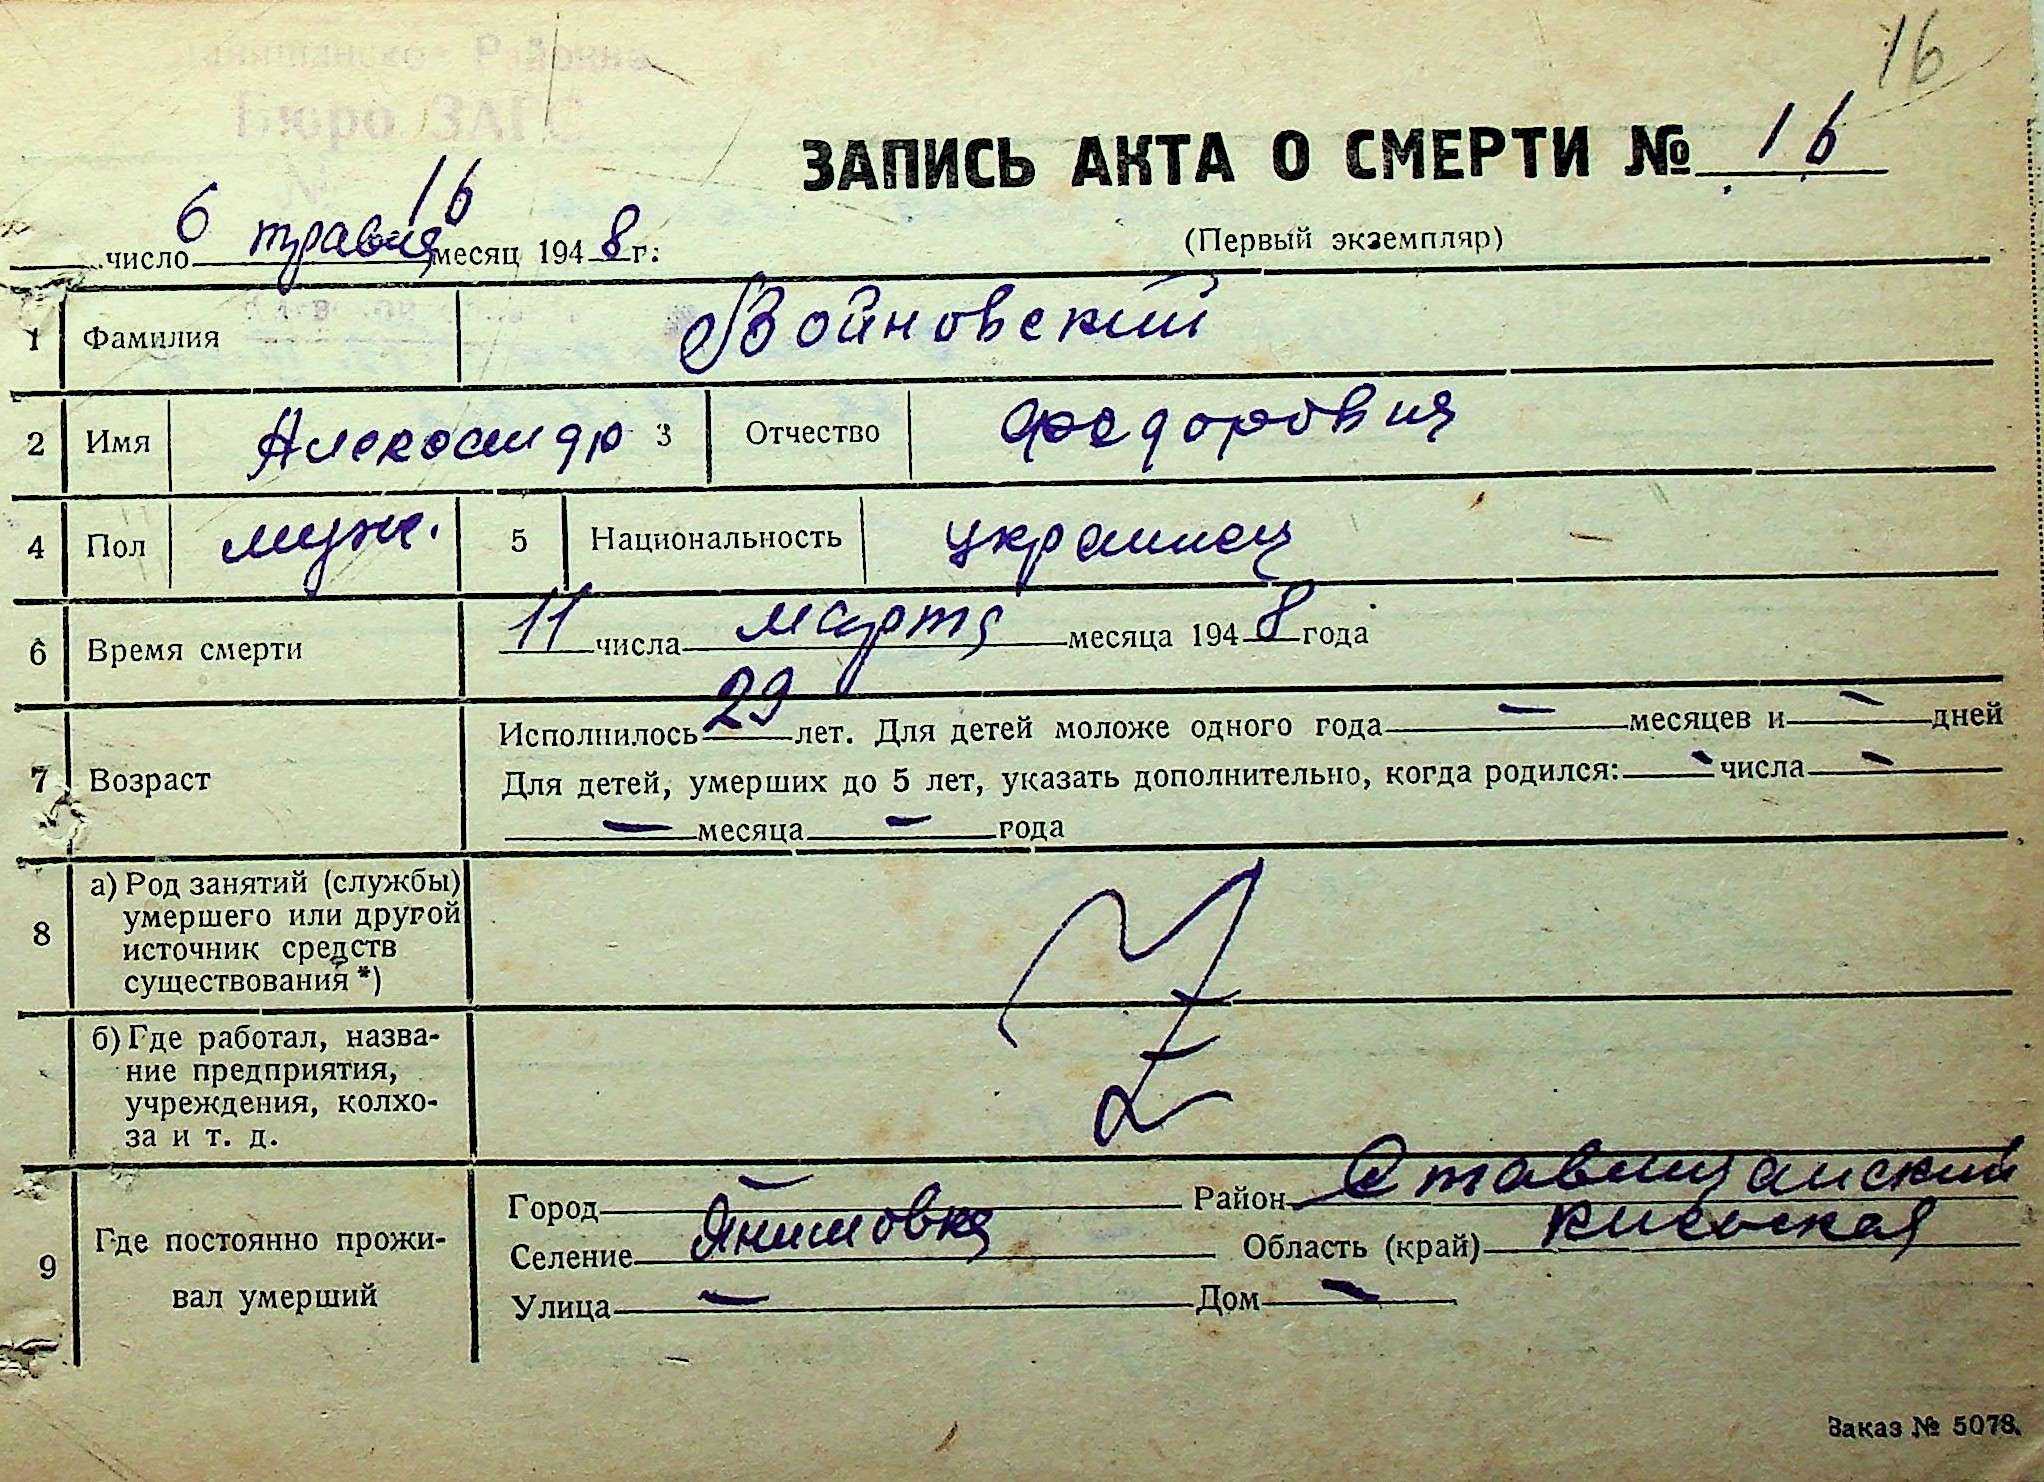 16
Районно
Бюро ЗАГС
№ 16
ЗАПИСЬ АКТА О СМЕРТИ № 16
число 6 травня месяц 1948 г.
(Первый экземпляр)
1 Фамилия Войновский
2 Имя Александр 3 Отчество Федорович
4 Пол муж. 5 Национальность украинец
6 Время смерти 11 числа марта месяца 1948 года
Исполнилось 29 лет. Для детей моложе одного года — месяцев и — дней
7 Возраст Для детей, умерших до 5 лет, указать дополнительно, когда родился: — числа —
— месяца — года
а) Род занятий (службы)
умершего или другой
8 источник средств
существования *)
б) Где работал, назва-
ние предприятия,
учреждения, колхо-
за и т. д.
Город — Район Ставищанский
9 Где постоянно прожи- Селение Янишовка Область (край) Киевская
вал умерший Улица — Дом —
Заказ № 5078.